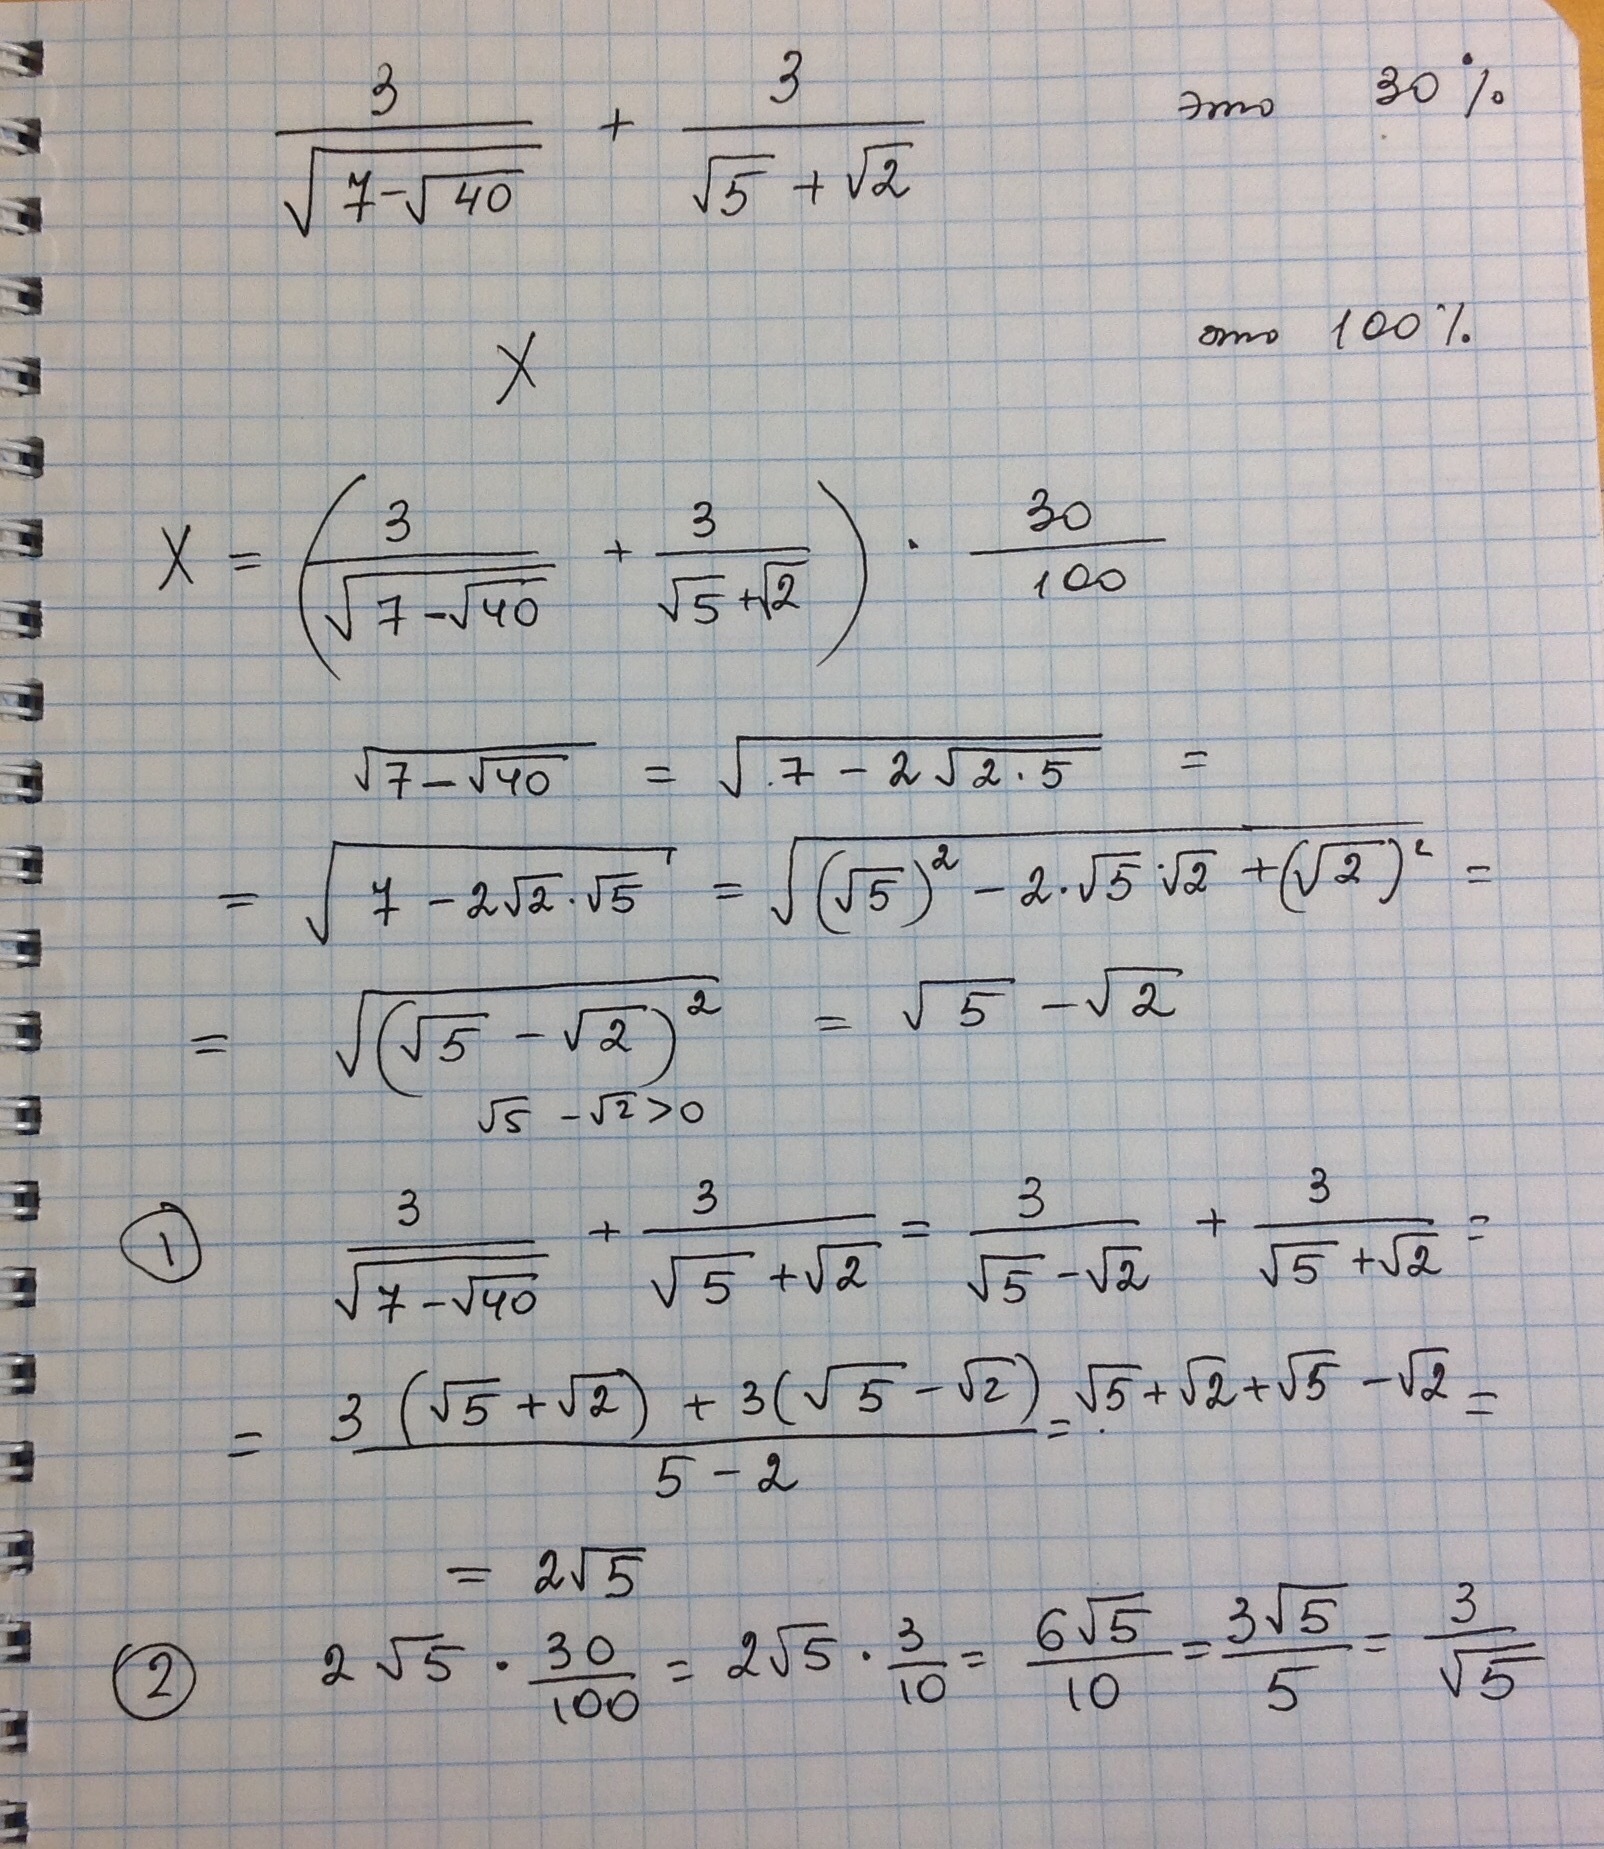 3/√(7-√40) + 3/(√5+√2) это 30%
X это 100%
X = (3/√(7-√40) + 3/(√5+√2)) · 30/100
√(7-√40) = √(7-2√(2·5)) =
= √(7-2√2·√5) = √((√5)²-2·√5·√2+(√2)²) =
= √((√5-√2)²) = √5-√2
√5-√2>0
① 3/√(7-√40) + 3/(√5+√2) = 3/(√5-√2) + 3/(√5+√2) =
= (3(√5+√2)+3(√5-√2))/(5-2) = √5+√2+√5-√2 =
= 2√5
② 2√5 · 30/100 = 2√5 · 3/10 = 6√5/10 = 3√5/5 = 3/√5